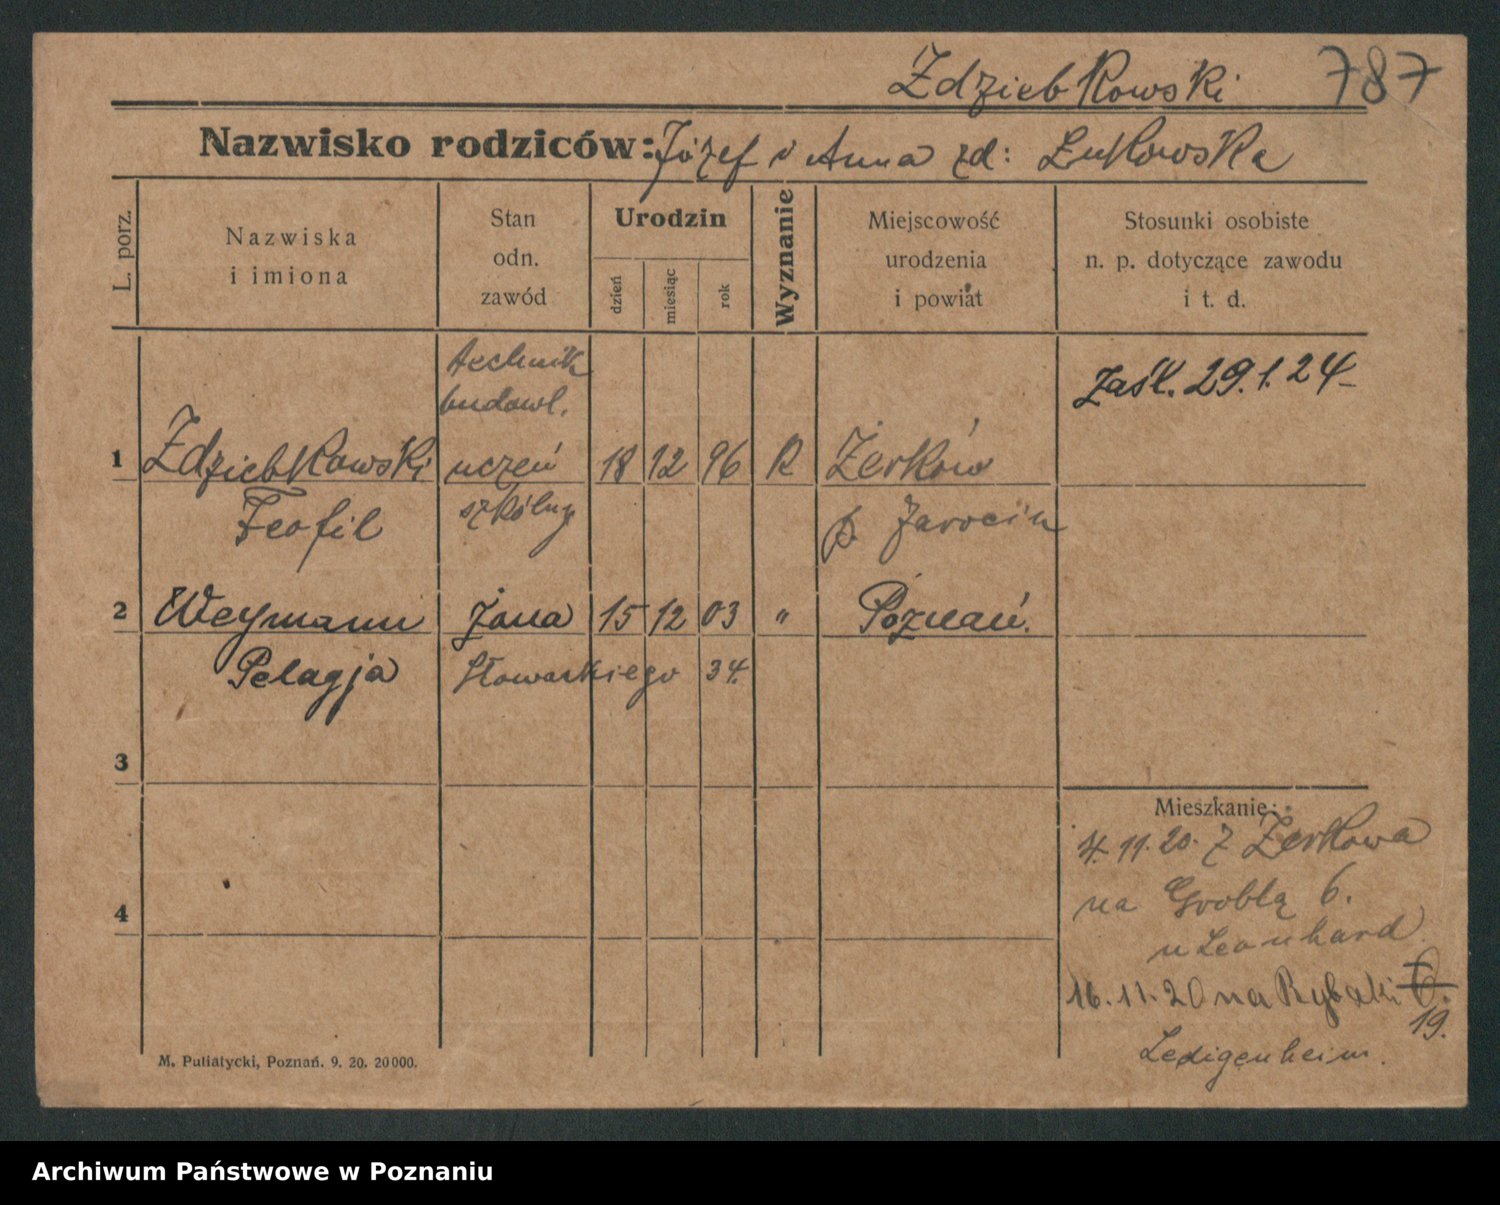 Zdziebkowski 787
Nazwisko rodziców: Józef i Anna zd: Łukowska
L. porz.
Nazwiska
i imiona
Stan
odn.
zawód
Urodzin
dzień
miesiąc
rok
Wyznanie
Miejscowość
urodzenia
i powiat
Stosunki osobiste
n. p. dotyczące zawodu
i t. d.
technik
budowl.
zaśl. 29.1.24
1 Zdziebkowski uczeń 18 12 96 R Żerków
Teofil szkólny p. Jarocin
2 Weymann żona 15 12 03 " Poznań.
Pelagja Słowackiego 34.
3
Mieszkanie:
4.11.20. z Żerkowa
na Groblą 6.
u Leonhard
4
16.11.20 na Rybaki 6.
19.
Ledigenheim.
M. Putiatycki, Poznań. 9. 20. 20000.
Archiwum Państwowe w Poznaniu